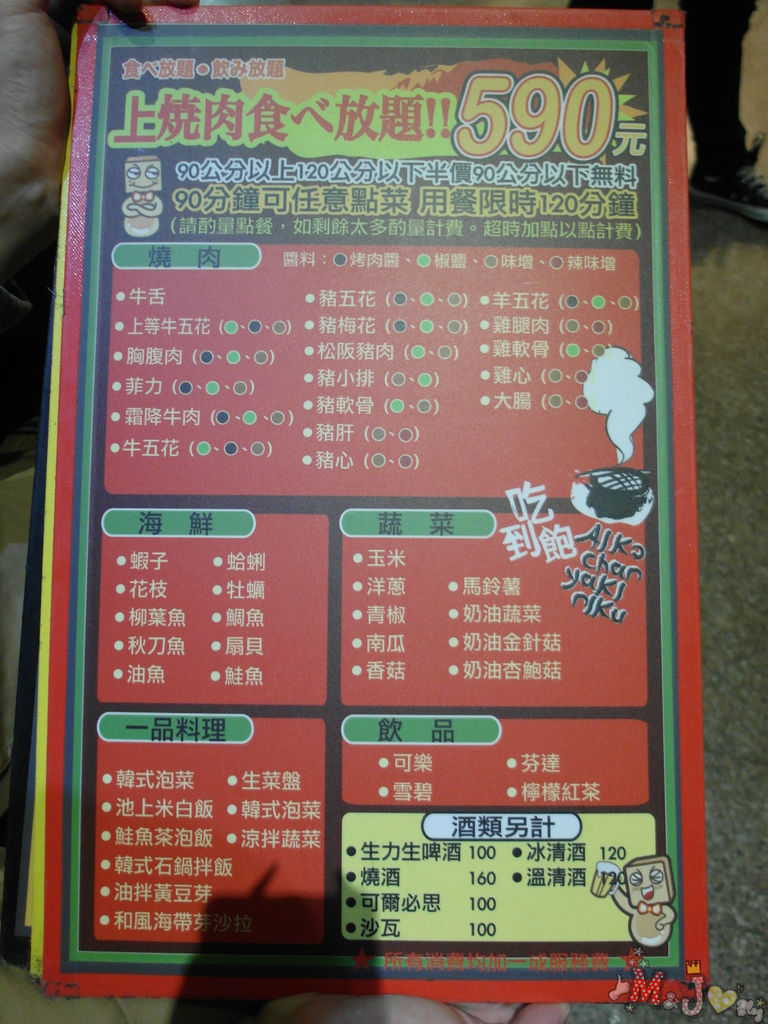 食べ放題●飲み放題
上燒肉食べ放題!!590元
90公分以上120公分以下半價90公分以下無料
90分鐘可任意點菜 用餐限時120分鐘
(請酌量點餐，如剩餘太多酌量計費。超時加點以點計費)
燒 肉
醬料：●烤肉醬、●椒鹽、●味增、●辣味增
●牛舌
●上等牛五花 (●、●、●)
●胸腹肉 (●、●、●)
●菲力 (●、●、●)
●霜降牛肉 (●、●、●)
●牛五花 (●、●、●)
●豬五花 (●、●、●)
●豬梅花 (●、●、●)
●松阪豬肉 (●、●)
●豬小排 (●、●)
●豬軟骨 (●、●)
●豬肝 (●、●)
●豬心 (●、●)
●羊五花 (●、●、●)
●雞腿肉 (●、●)
●雞軟骨 (●、●
●雞心 (●、●
●大腸 (●、●
吃到飽
Aiko
char
yaki
niku
海 鮮
●蝦子
●花枝
●柳葉魚
●秋刀魚
●油魚
●蛤蜊
●牡蠣
●鯛魚
●扇貝
●鮭魚
蔬 菜
●玉米
●洋蔥
●青椒
●南瓜
●香菇
●馬鈴薯
●奶油蔬菜
●奶油金針菇
●奶油杏鮑菇
一品料理
●韓式泡菜
●池上米白飯
●鮭魚茶泡飯
●韓式石鍋拌飯
●油拌黃豆芽
●和風海帶芽沙拉
●生菜盤
●韓式泡菜
●涼拌蔬菜
飲 品
●可樂
●雪碧
●芬達
●檸檬紅茶
酒類另計
●生力生啤酒 100
●燒酒 160
●可爾必思 100
●沙瓦 100
●冰清酒 120
●溫清酒 120
★ 所有消費均加一成服務費 ★
M&J